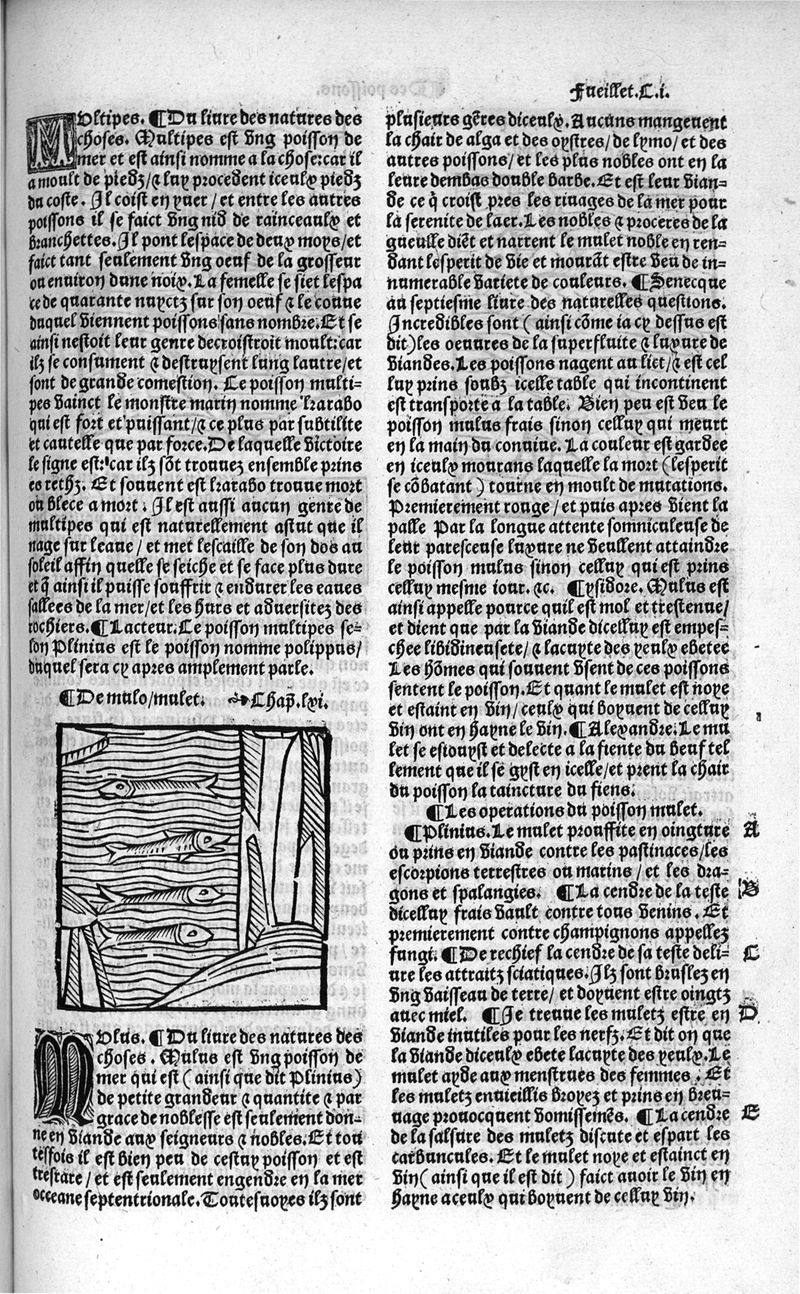 Fueillet.C.i.
MUltipes. ¶Du liure des natures des
choses. Multipes est vng poisson de
mer et est ainsi nomme a la chose: car il
a moult de piedz/⁊ luy procedent iceulx piedz
du coste. Il coist en yuer/ et entre les autres
poissons il se faict vng nid de rainceaulx et
branchettes. Il pont lespace de deux moys/et
faict tant seulement vng oeuf de la grosseur
ou enuiron dune noix. La femelle se siet lespa
ce de quarante nuyctz sur son oeuf ⁊ le couue
duquel viennent poissons sans nombre. Et se
ainsi nestoit leur genre decroistroit moult: car
ilz se consument ⁊ destruysent lung lautre/et
sont de grande comestion. Ce poisson multi-
pes vainct le monstre marin nomme krarabo
qui est fort et puissant/⁊ ce plus par subtilite
et cautelle que par force. De laquelle victoire
le signe est: car ilz sõt trouuez ensemble prins
es rethz. Et souuent est krarabo trouue mort
ou blece a mort. Il est aussi aucun genre de
multipes qui est naturellement astut que il
nage sur leaue/ et met lescaille de son dos au
soleil affin quelle se seiche et se face plus dure
et q̃ ainsi il puisse souffrir ⁊ endurer les eaues
sallees de la mer/et les hurs et aduersitez des
rochiers. ¶Lacteur. Ce poisson multipes se-
lon Plinius est le poisson nomme polippus/
duquel sera cy apres amplement parle.
¶De mulo/mulet. Chap̃. lxi.
MUlus. ¶Du liure des natures des
choses. Mulus est vng poisson de
mer qui est (ainsi que dit Plinius)
de petite grandeur ⁊ quantite ⁊ par
grace de noblesse est seulement don-
ne en viande aux seigneurs ⁊ nobles. Et tou
tesfois il est bien peu de cestuy poisson et est
tresrare/ et est seulement engendre en la mer
occeane septentrionale. Toutesuoyes ilz sont
plusieurs gẽres diceulx. Aucuns mangeuent
la chair de alga et des oystres/de lymo/et des
autres poissons/et les plus nobles ont en la
leure dembas double barbe. Et est leur vian-
de ce q̃ croist pres les riuages de la mer pour
la serenite de laer. Les nobles ⁊ proceres de la
gueulle diẽt et narrent le mulet noble en ren-
dant lesperit de vie et mourãt estre veu de in-
numerable variete de couleurs. ¶Senecque
au septiesme liure des naturelles questions.
Incredibles sont (ainsi cõme ia cy dessus est
dit) les oeuures de la superfluite ⁊ luxure de
viandes. Les poissons nagent au lict/⁊ est cel
luy prins soubz icelle table qui incontinent
est transporte a la table. Bien peu est veu le
poisson mulus frais sinon celluy qui meurt
en la main du conuiue. La couleur est gardee
en iceulx mourans laquelle la mort (lesperit
se cõbatant) tourne en moult de mutations.
Premierement rouge/et puis apres vient la
palle Par la longue attente somniculeuse de
leur paresceuse luxure ne veullent attaindre
le poisson mulus sinon celluy qui est prins
celluy mesme iour. ⁊c. ¶Ysidore. Mulus est
ainsi appelle pource quil est mol et trestenue/
et dient que par la viande dicelluy est empes-
chee libidineusete/⁊ lacuyte des yeulx ebetee
Les hõmes qui souuent vsent de ces poissons
sentent le poisson. Et quant le mulet est noye
et estaint en vin/ceulx qui boyuent de celluy
vin ont en hayne le vin. ¶Alexandre. Le mu
let se esiouyst et delecte a la fiente du beuf tel
lement que il se gyst en icelle/et prent la chair
du poisson la taincture du fiens.
¶Les operations du poisson mulet.
¶Plinius. Le mulet prouffite en oingture A
ou prins en viande contre les pastinaces/les
escorpions terrestres ou marins/ et les dra-
gons et spalangies. ¶La cendre de la teste B
dicelluy frais vault contre tous venins. Et
premierement contre champignons appellez
fungi. ¶De rechief la cendre de sa teste deli- C
ure les attraitz sciatiques. Ilz sont bruslez en
vng vaisseau de terre/ et doyuent estre oingtz
auec miel. ¶Je treuue les muletz estre en D
viande inutiles pour les nerfz. Et dit on que
la viande diceulx ebete lacuyte des yeulx. Le
mulet ayde aux menstrues des femmes. Et
les muletz enuieillis broyez et prins en breu-
uage prouocquent vomissemẽs. ¶La cendre E
de la salsure des muletz discute et espart les
carbuncules. Et le mulet noye et estainct en
vin (ainsi que il est dit) faict auoir le vin en
hayne a ceulx qui boyuent de celluy vin.